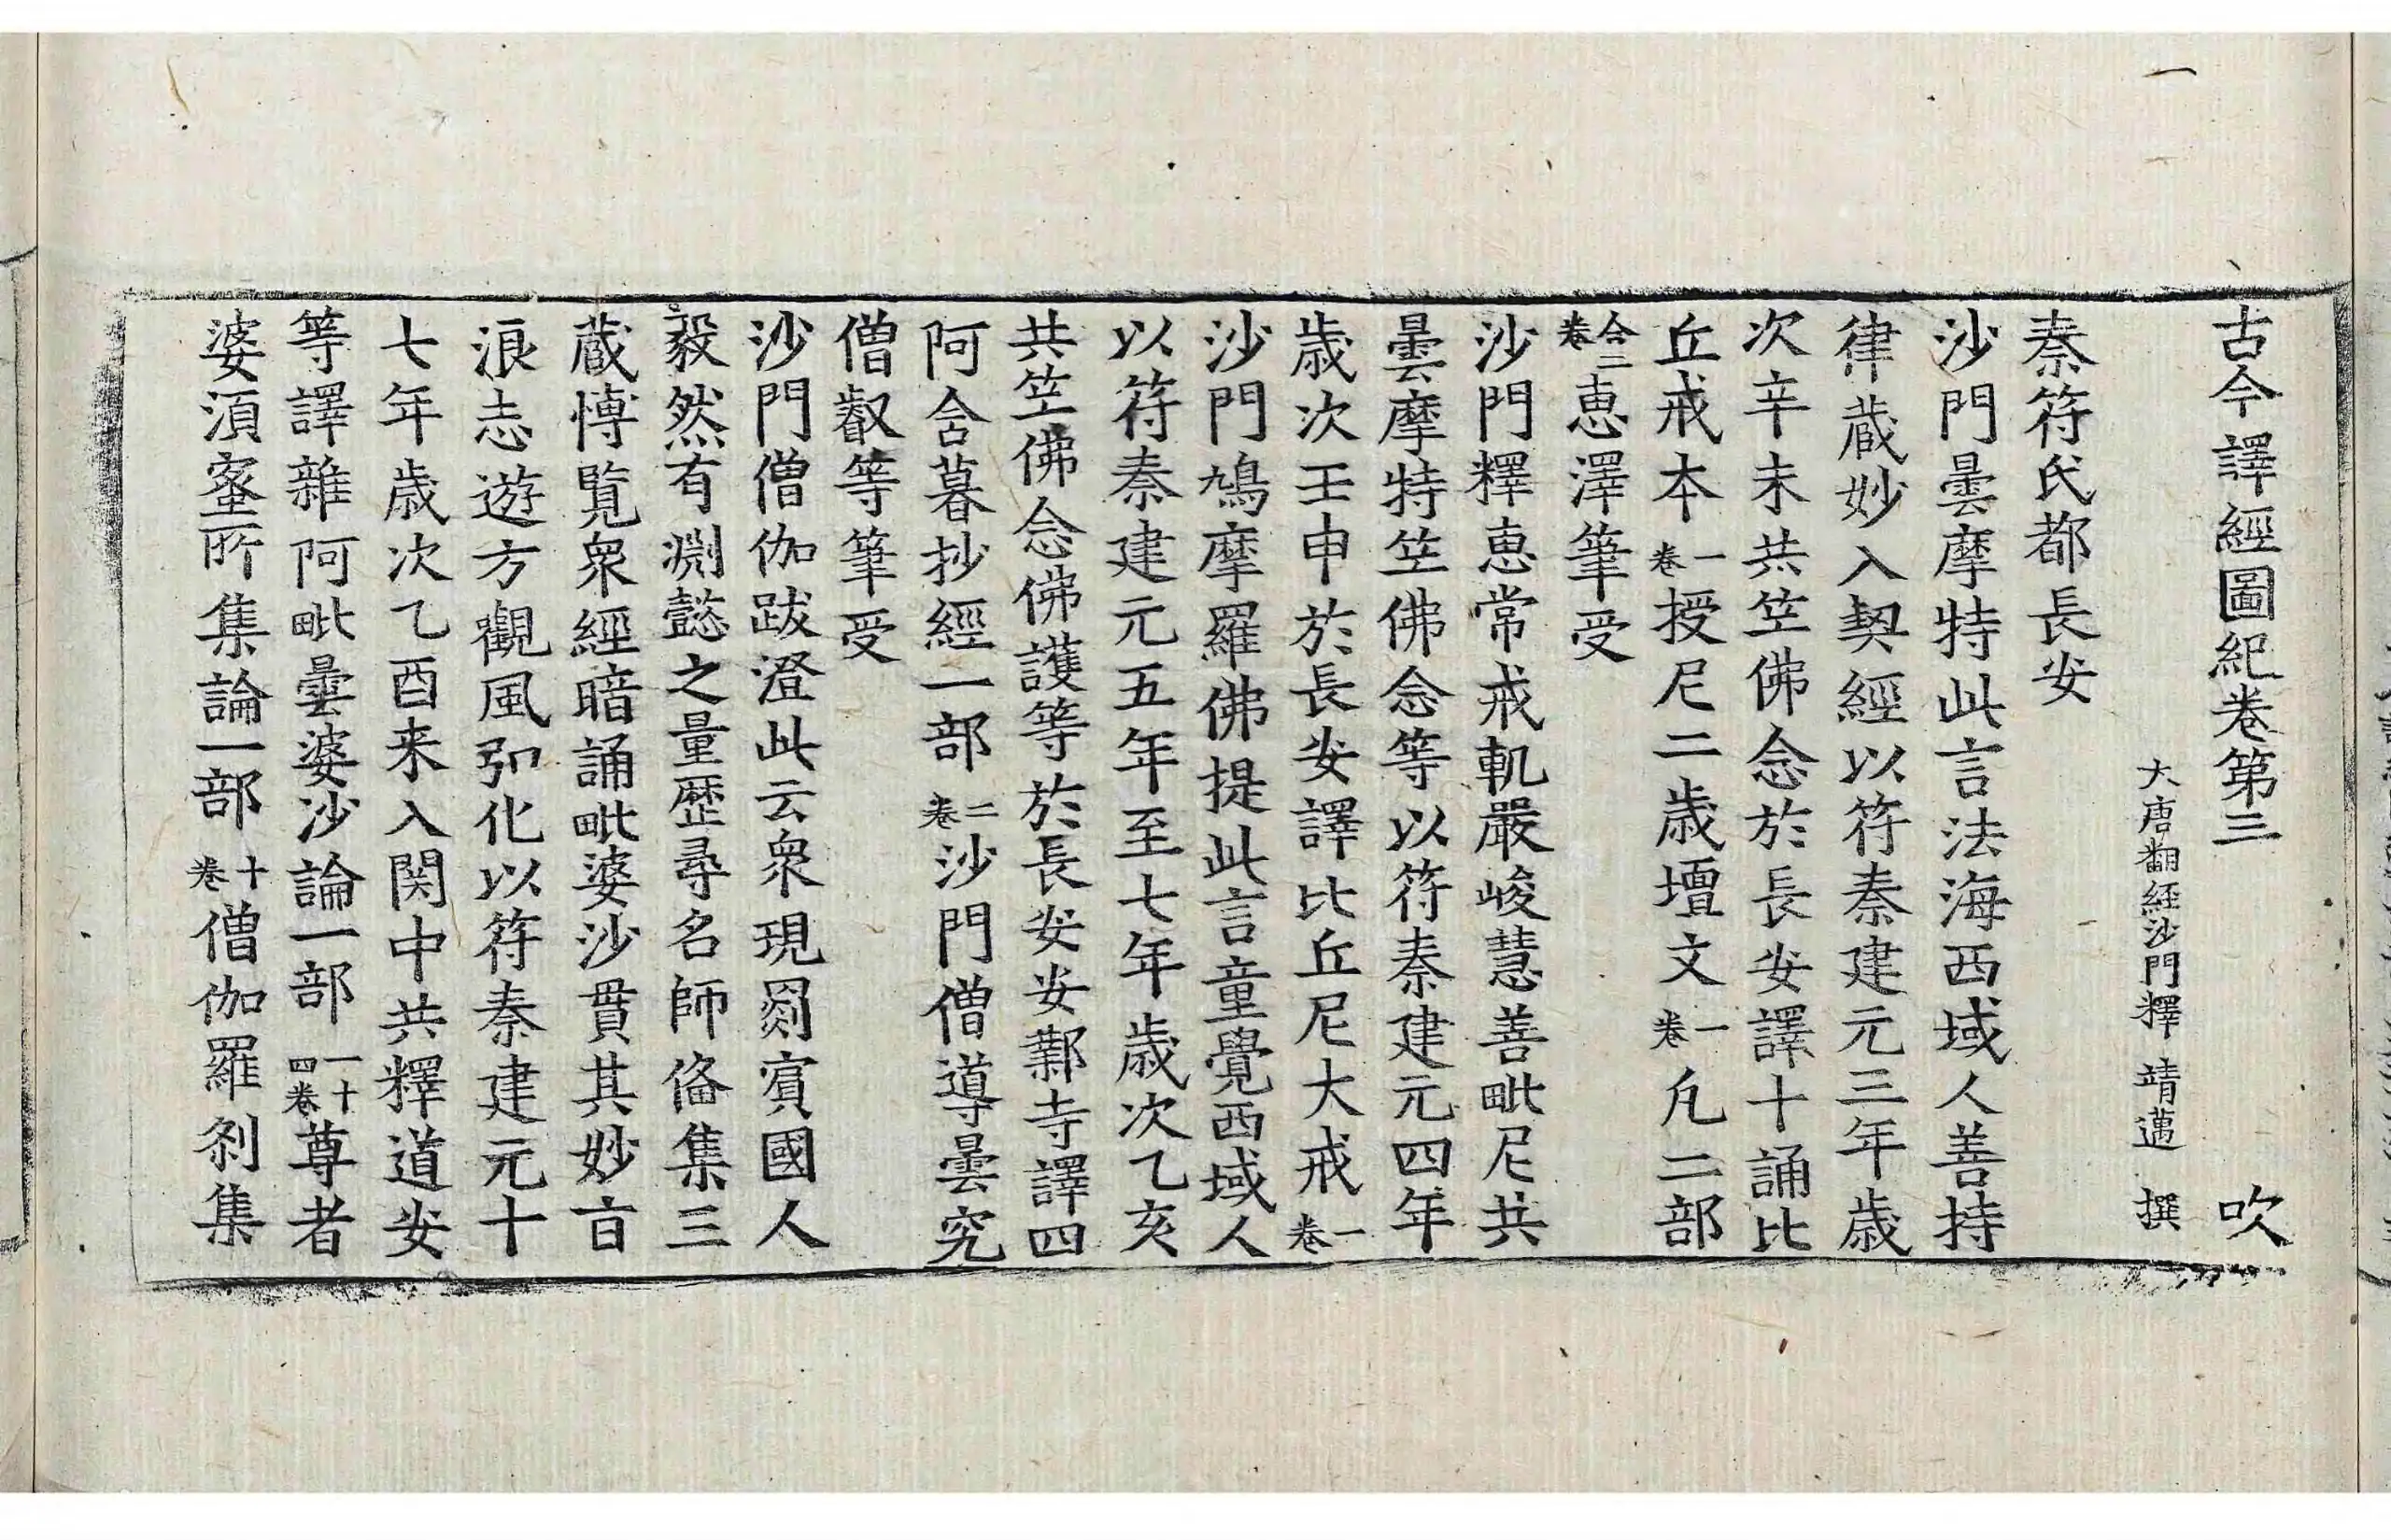 古今譯經圖紀卷第三 吹
大唐翻経沙門釋 靖邁 撰
秦苻氏都長安
沙門曇摩特此言法海西域人善持
律蔵妙入契經以苻秦建元三年歳
次辛未共笁佛念於長安譯十誦比
丘戒本一卷授尼二歳壇文一卷凢二部
合二卷恵澤筆受
沙門釋恵常戒軌嚴峻慧善毗尼共
曇摩特笁佛念等以苻秦建元四年
歳次壬申於長安譯比丘尼大戒一卷
沙門鳩摩羅佛提此言童覺西域人
以苻秦建元五年至七年歳次乙亥
共笁佛念佛護等於長安安鄴寺譯四
阿含暮抄經一部二卷沙門僧導曇究
僧叡等筆受
沙門僧伽跋澄此云衆現罽賓國人
毅然有渊懿之量歴尋名師俻集三
蔵愽覧衆經暗誦毗婆沙貫其妙㫖
浪志遊方觀風弘化以苻秦建元十
七年歳次乙酉来入関中共釋道安
等譯雜阿毗曇婆沙論一部一十四卷尊者
婆湏蜜所集論一部十卷僧伽羅剎集